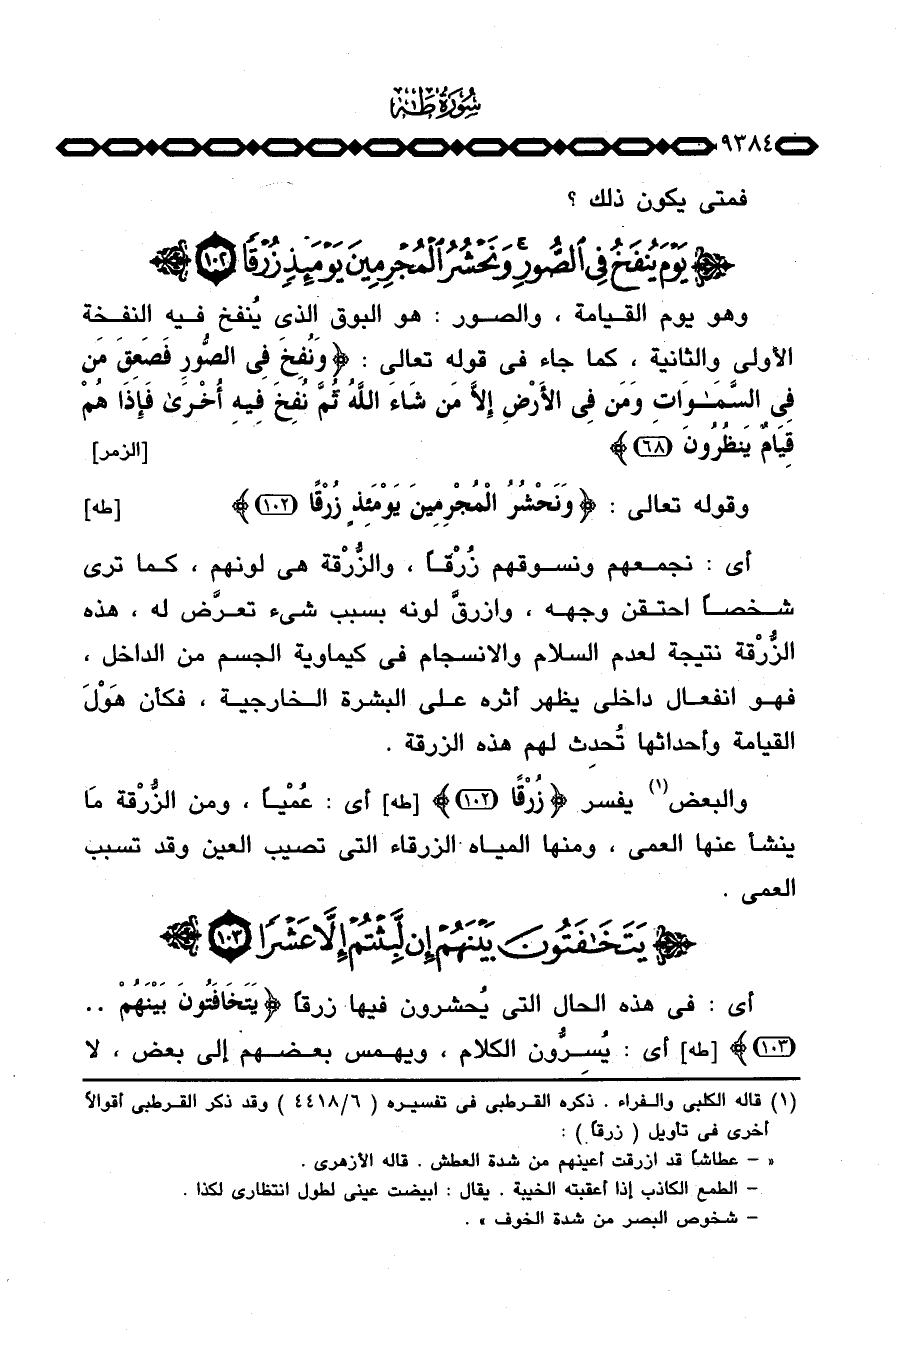 سُورَةُ طه
٩٣٨٤
فمتى يكون ذلك ؟
﴿ يَوْمَ يُنفَخُ فِى ٱلصُّورِ ۚ وَنَحْشُرُ ٱلْمُجْرِمِينَ يَوْمَئِذٍ زُرْقًا ۝١٠٢ ﴾
وهو يوم القيامة ، والصور : هو البوق الذى يُنفخ فيه النفخة
الأولى والثانية ، كما جاء فى قوله تعالى : ﴿ وَنُفِخَ فِى الصُّورِ فَصَعِقَ مَن
فِى السَّمَـٰوَاتِ وَمَن فِى الأَرْضِ إِلاَّ مَن شَاءَ اللَّهُ ثُمَّ نُفِخَ فِيهِ أُخْرَىٰ فَإِذَا هُمْ
قِيَامٌ يَنظُرُونَ (٦٨) ﴾ [الزمر]
وقوله تعالى : ﴿ وَنَحْشُرُ الْمُجْرِمِينَ يَوْمَئِذٍ زُرْقًا (١٠٢) ﴾ [طه]
أى : نجمعهم ونسوقهم زُرْقاً ، والزُّرْقة هى لونهم ، كما ترى
شخصاً احتقن وجهه ، وازرقَّ لونه بسبب شىء تعرَّض له ، هذه
الزُّرْقة نتيجة لعدم السلام والانسجام فى كيماوية الجسم من الداخل ،
فهو انفعال داخلى يظهر أثره على البشرة الخارجية ، فكأن هَوْلَ
القيامة وأحداثها تُحدِث لهم هذه الزرقة .
والبعض(١) يفسر ﴿ زُرْقًا (١٠٢) ﴾ [طه] أى : عُمْياً ، ومن الزُّرْقة مَا
ينشأ عنها العمى ، ومنها المياه الزرقاء التى تصيب العين وقد تسبب
العمى .
﴿ يَتَخَـٰفَتُونَ بَيْنَهُمْ إِن لَّبِثْتُمْ إِلَّا عَشْرًا ۝١٠٣ ﴾
أى : فى هذه الحال التى يُحشرون فيها زرقاً ﴿ يَتَخَافَتُونَ بَيْنَهُمْ ..
(١٠٣) ﴾ [طه] أى : يُسِرُّون الكلام ، ويهمس بعضهم إلى بعض ، لا
(١) قاله الكلبى والفراء . ذكره القرطبى فى تفسيره ( ٤٤١٨/٦ ) وقد ذكر القرطبى أقوالاً
أخرى فى تأويل ( زرقاً ) :
« – عطاشاً قد ازرقت أعينهم من شدة العطش . قاله الأزهرى .
– الطمع الكاذب إذا أعقبته الخيبة . يقال : ابيضت عينى لطول انتظارى لكذا .
– شخوص البصر من شدة الخوف » .